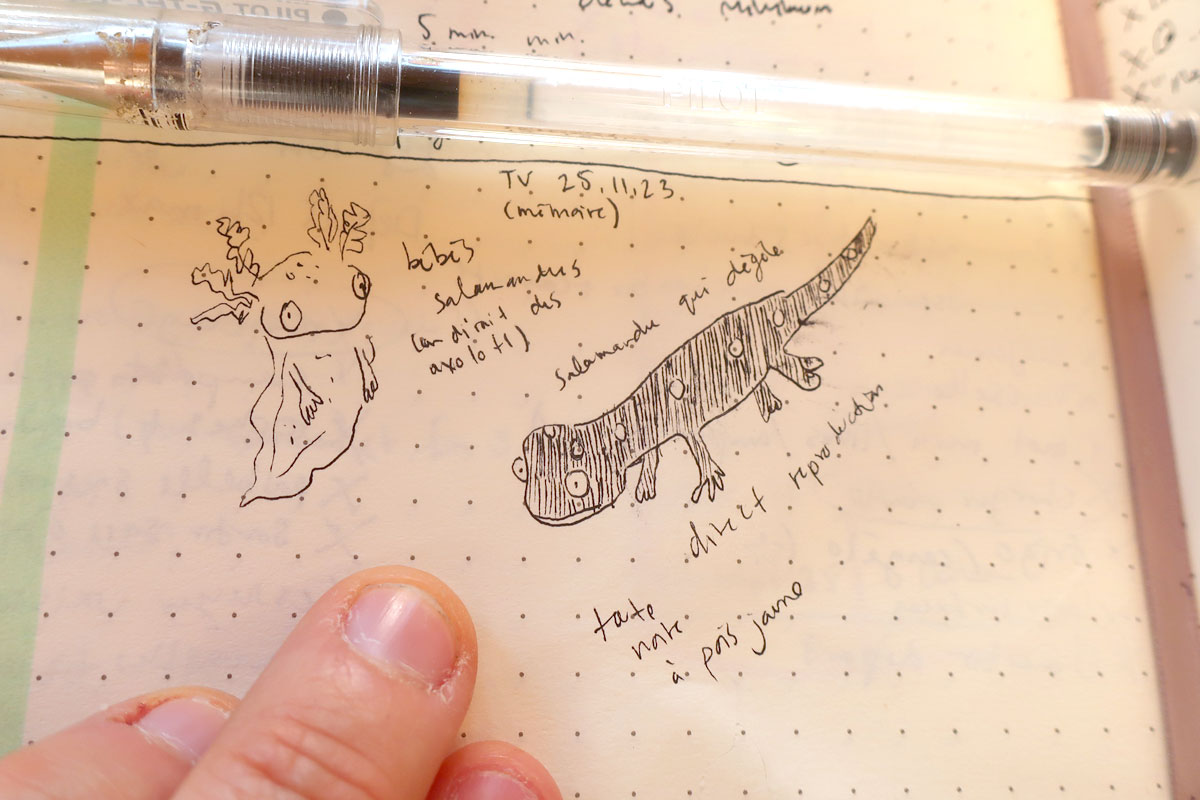 PILOT G-TEC
minimum
5 min. min.
PILOT
TV 25.11.23
(mémoire)
bébés
salamandres
(on dirait des
axolotl)
salamandre qui dégèle
direct reproduction
toute
noire
à pois jaune